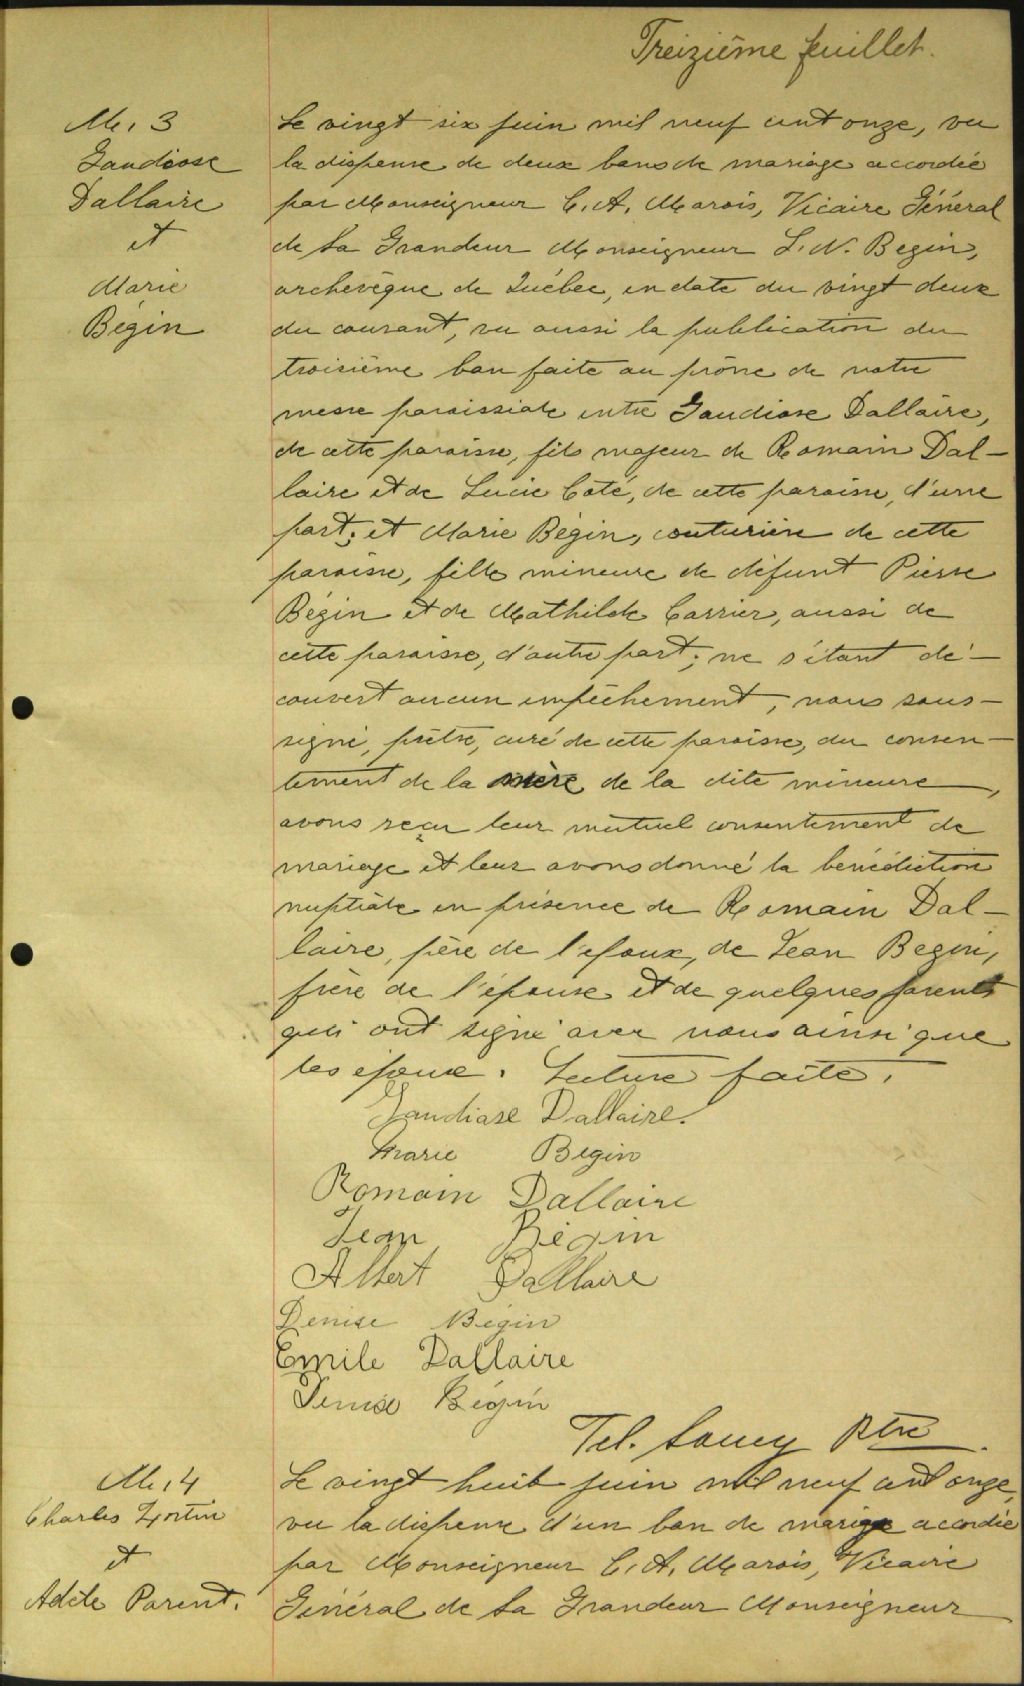 Treizième feuillet.
M. 3
Gaudiose
Dallaire
et
Marie
Bégin
Le vingt six juin mil neuf cent onze, vu
la dispense de deux bans de mariage accordée
par Monseigneur C. A. Marois, Vicaire Général
de Sa Grandeur Monseigneur L. N. Begin,
archevêque de Québec, en date du vingt deux
du courant, vu aussi la publication du
troisième ban faite au prône de notre
messe paroissiale entre Gaudiose Dallaire,
de cette paroisse, fils majeur de Romain Dal-
laire et de Lucie Coté, de cette paroisse, d'une
part; et Marie Bégin, couturière de cette
paroisse, fille mineure de défunt Pierre
Bégin et de Mathilde Carrier, aussi de
cette paroisse, d'autre part; ne s'étant dé-
couvert aucun empêchement, nous sous-
signé, prêtre, curé de cette paroisse, du consen-
tement de la mère de la dite mineure,
avons reçu leur mutuel consentement de
mariage et leur avons donné la bénédiction
nuptiale en présence de Romain Dal-
laire, père de l'époux, de Jean Begin,
frère de l'épouse et de quelques parents
qui ont signé avec nous ainsi que
les époux. Lecture faite.
Gaudiase Dallaire.
Marie Begin
Romain Dallaire
Jean Bégin
Albert Dalllaire
Denise Bégin
Emile Dallaire
Bégin
Tel. Soucy Ptre
M. 4
Charles Fortin
et
Adèle Parent.
Le vingt huit juin mil neuf cent onze,
vu la dispense d'un ban de mariage accordée
par Monseigneur C. A. Marois, Vicaire
Général de Sa Grandeur Monseigneur